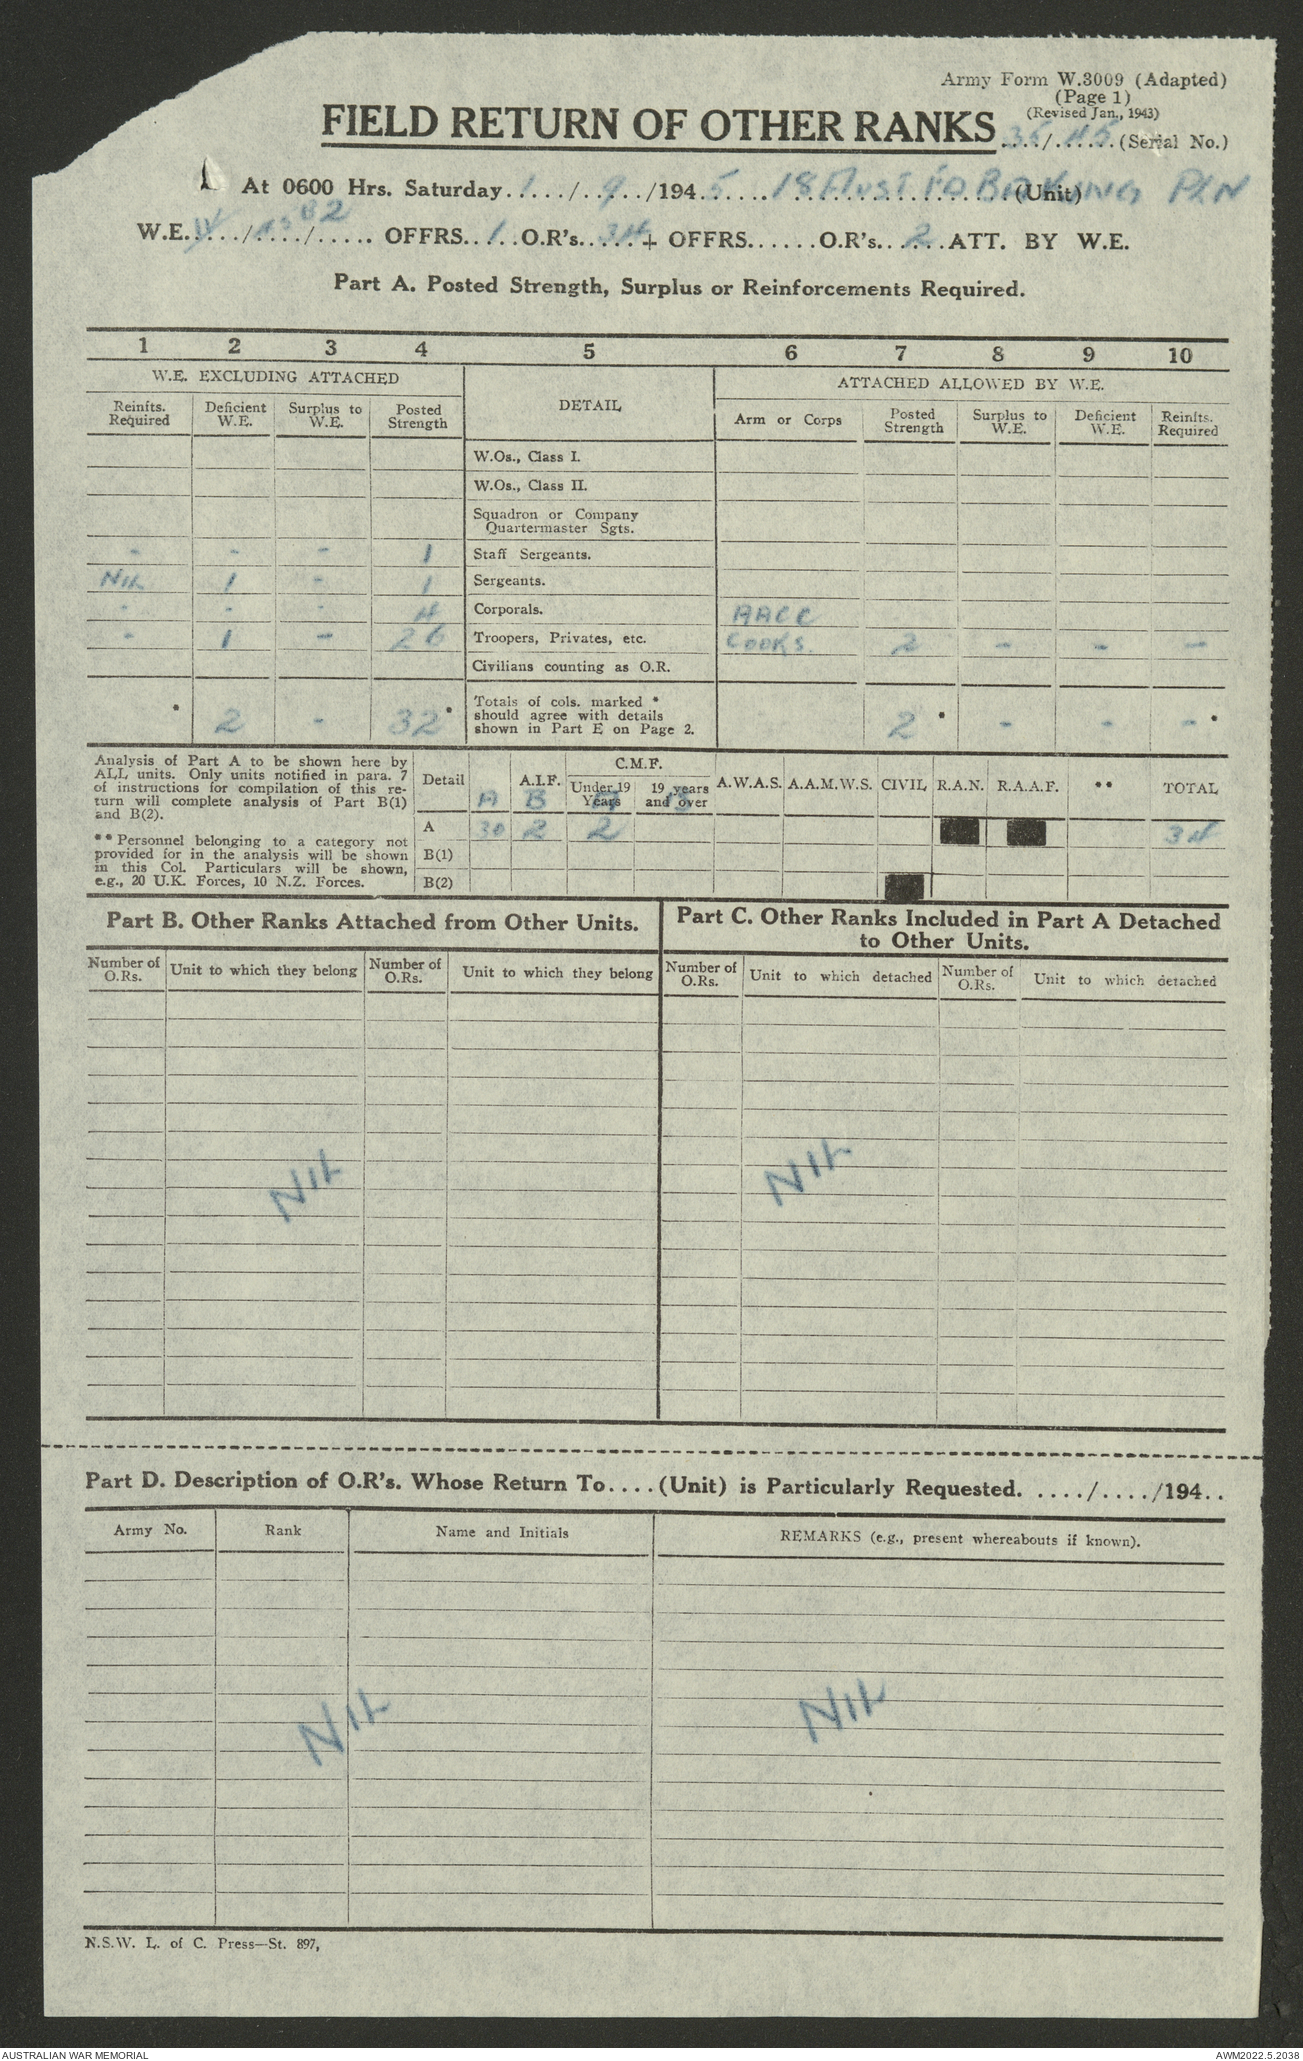 Army Form W.3009 (Adapted)
(Page 1)
(Revised Jan., 1943)
FIELD RETURN OF OTHER RANKS 35/45 (Serial No.)
At 0600 Hrs. Saturday 1/9/1945 18 Aust Fd Baking Pln (Unit)
W.E. ..../..../..... OFFRS. 1 O.R's. 34 + OFFRS...... O.R's. 2 ATT. BY W.E.
Part A. Posted Strength, Surplus or Reinforcements Required.
1 2 3 4 5 6 7 8 9 10
W.E. EXCLUDING ATTACHED DETAIL ATTACHED ALLOWED BY W.E.
Reinfts. Required Deficient W.E. Surplus to W.E. Posted Strength Arm or Corps Posted Strength Surplus to W.E. Deficient W.E. Reinfts. Required
W.Os., Class I.
W.Os., Class II.
Squadron or Company
Quartermaster Sgts.
- - - 1 Staff Sergeants.
Nil 1 - 1 Sergeants.
- - - 4 Corporals. AACC
- 1 - 26 Troopers, Privates, etc. COOKS. 2 - - -
Civilians counting as O.R.
Totals of cols. marked *
should agree with details
* 2 - 32 * shown in Part E on Page 2. 2 * - - - *
Analysis of Part A to be shown here by
ALL units. Only units notified in para. 7
of instructions for compilation of this re-
turn will complete analysis of Part B(1)
and B(2).
** Personnel belonging to a category not
provided for in the analysis will be shown
in this Col. Particulars will be shown,
e.g., 20 U.K. Forces, 10 N.Z. Forces.
Detail A.I.F. C.M.F. A.W.A.S. A.A.M.W.S. CIVIL R.A.N. R.A.A.F. ** TOTAL
Under 19 Years 19 years and over
A B
A 30 2 2 34
B(1)
B(2)
Part B. Other Ranks Attached from Other Units.
Part C. Other Ranks Included in Part A Detached
to Other Units.
Number of O.Rs. Unit to which they belong Number of O.Rs. Unit to which they belong Number of O.Rs. Unit to which detached Number of O.Rs. Unit to which detached
Nil Nil
Part D. Description of O.R's. Whose Return To.... (Unit) is Particularly Requested. ..../..../194..
Army No. Rank Name and Initials REMARKS (e.g., present whereabouts if known).
Nil Nil
N.S.W. L. of C. Press—St. 897,
AUSTRALIAN WAR MEMORIAL AWM2022.5.2038